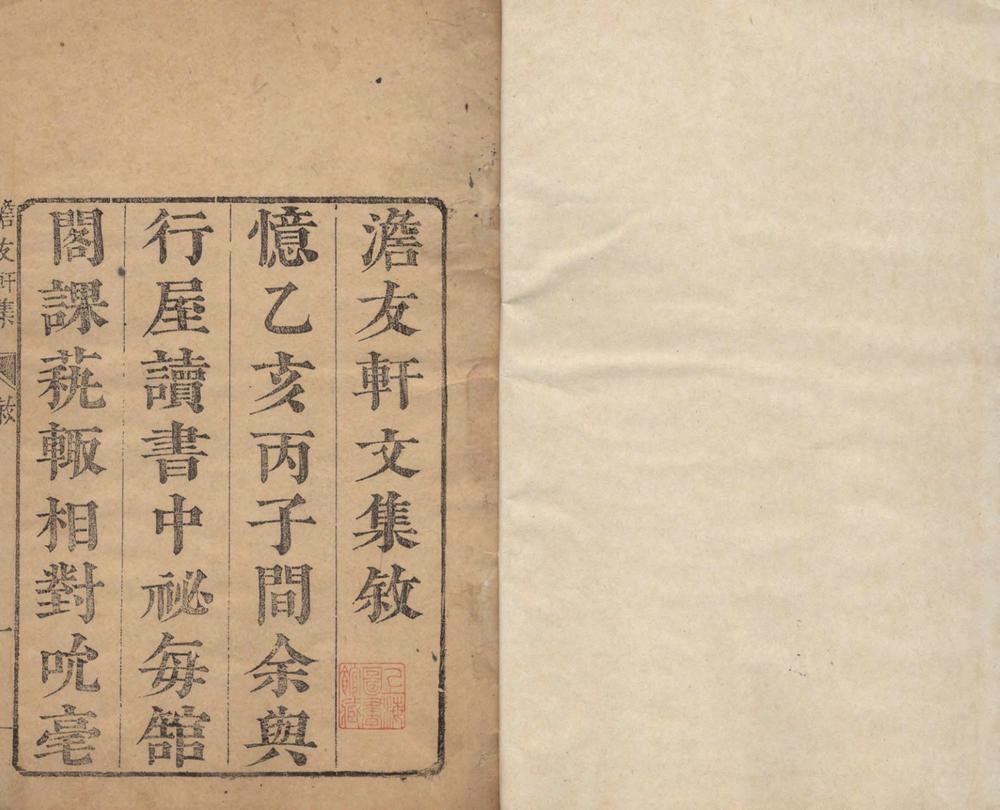 澹友軒文集敘
憶乙亥丙子間余與
行屋讀書中祕每舘
閣課蓺輙相對吮毫
上海圖書館藏
友軒集
敘
一